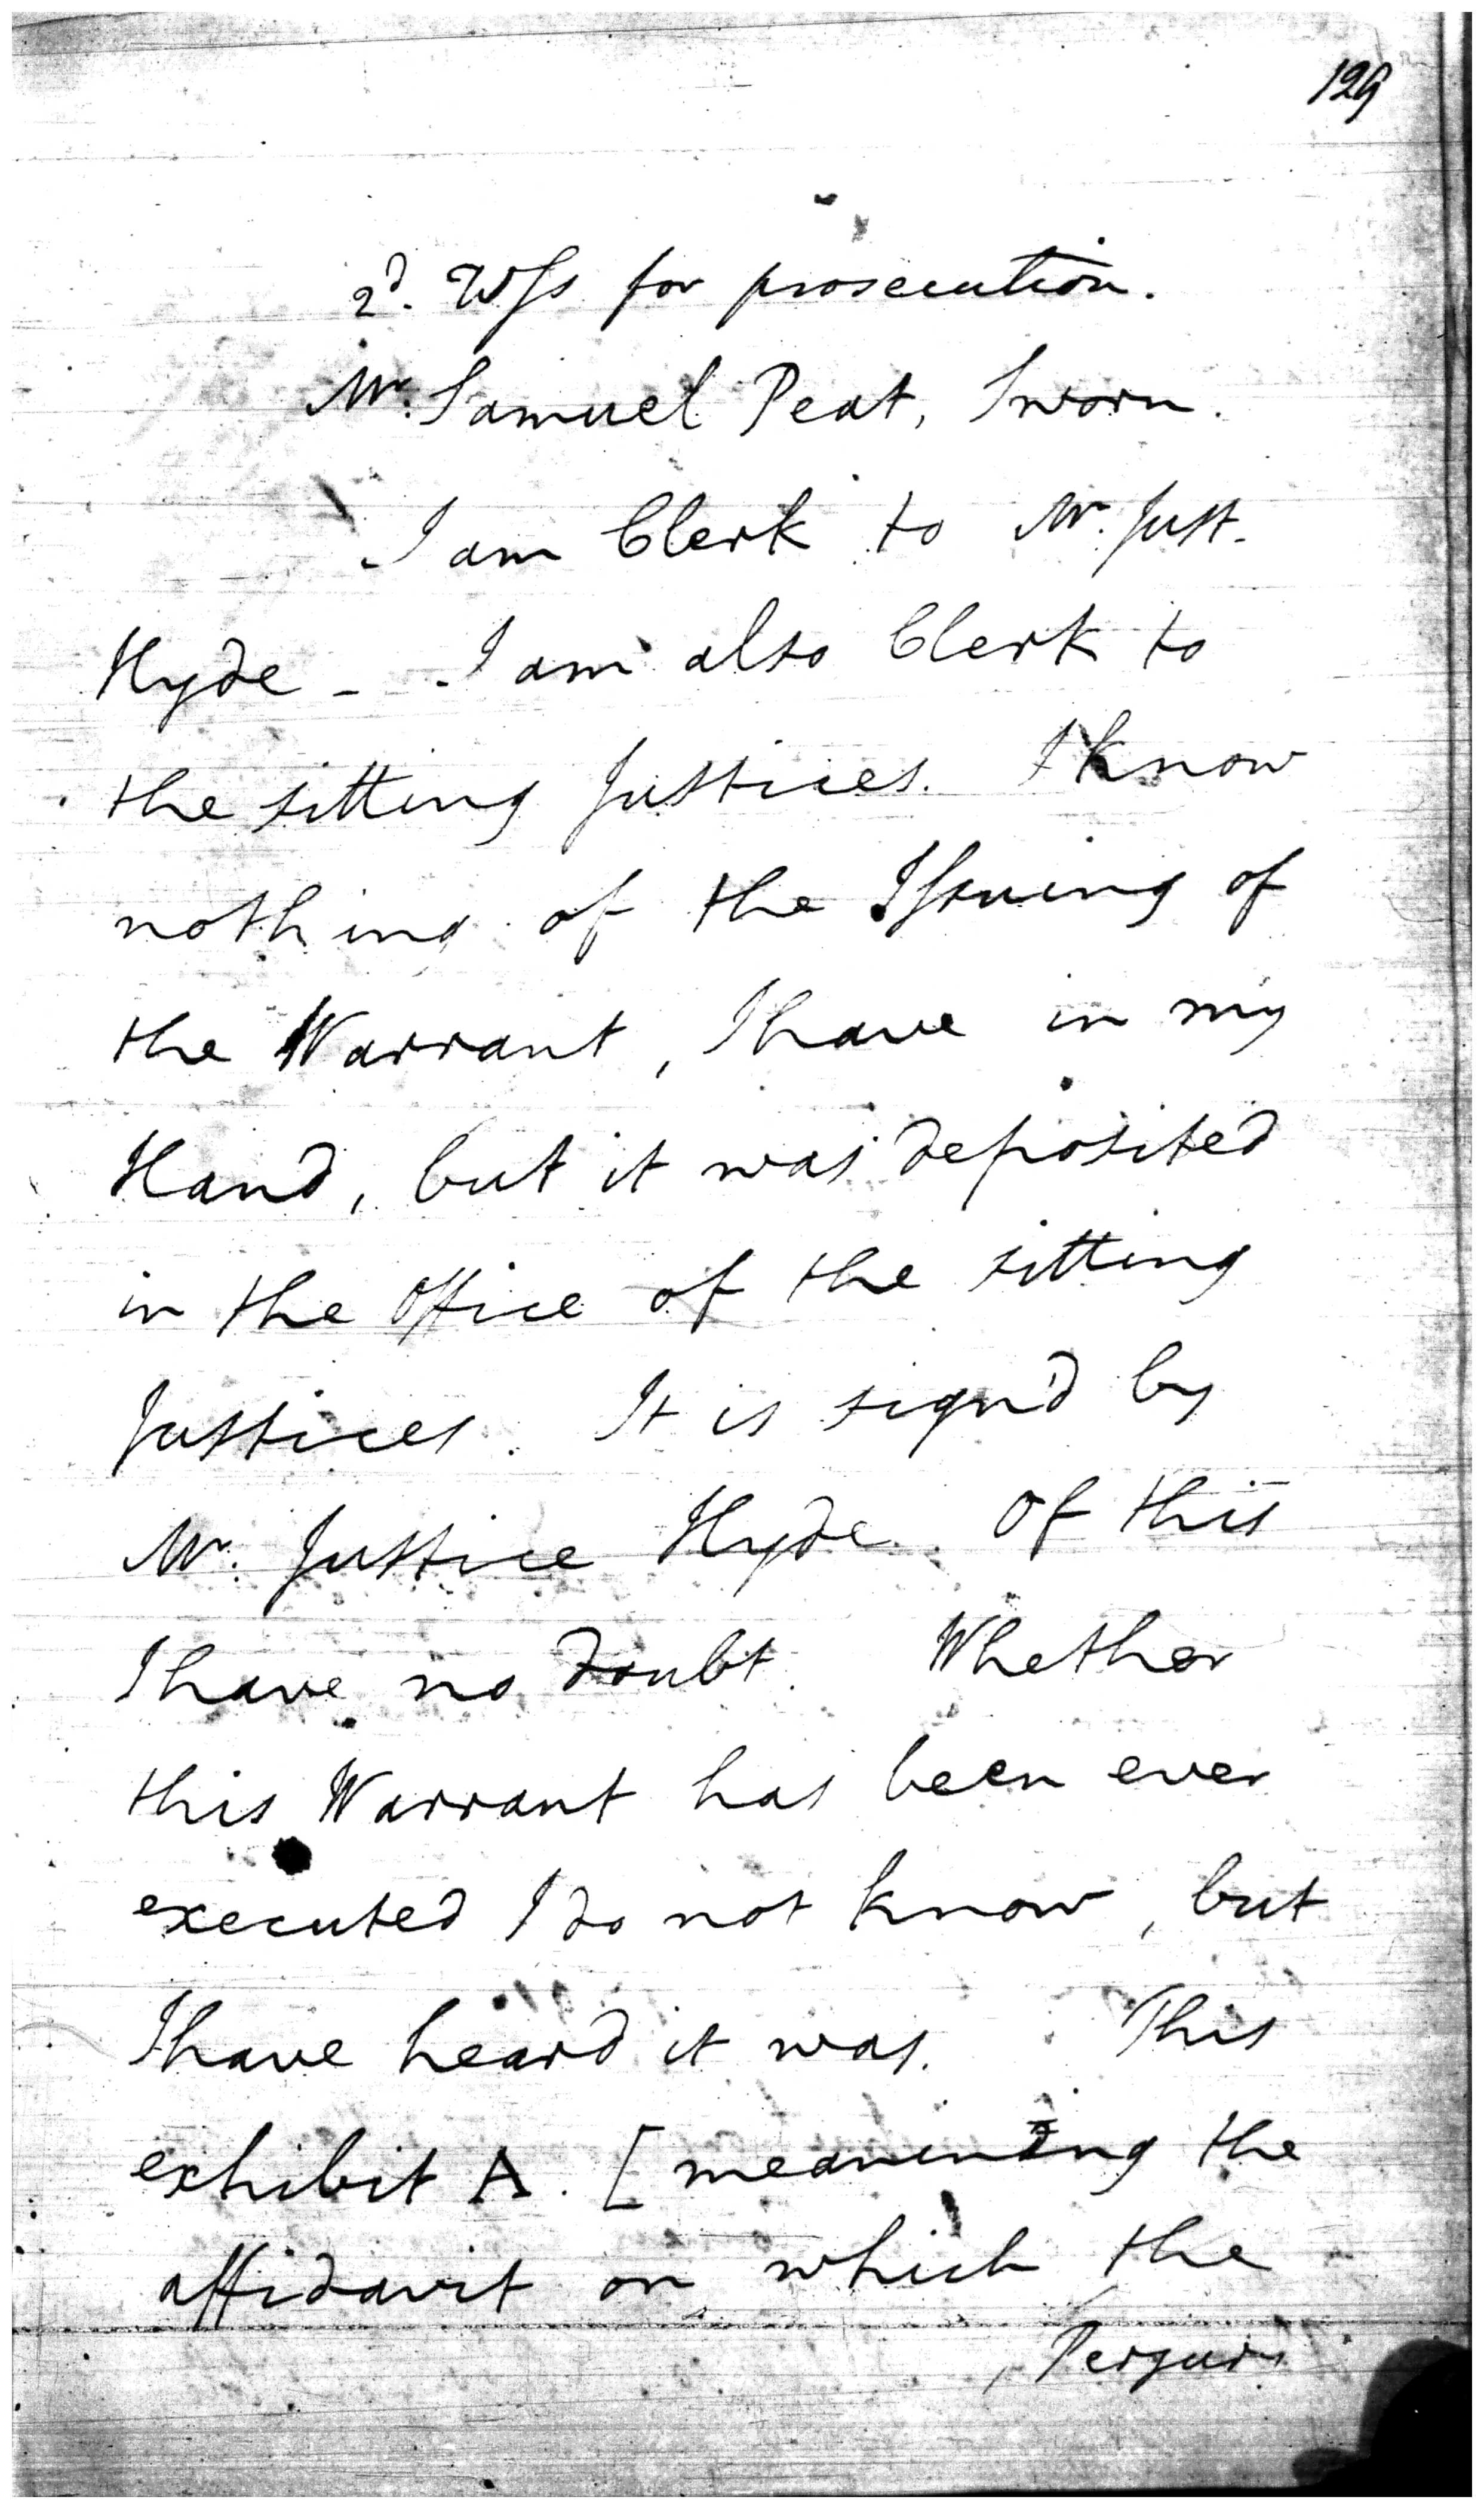 129
2d. Wss for prosecution.
Mr. Samuel Peat, Sworn.
I am Clerk to Mr. Just.
Hyde - I am also Clerk to
the sitting Justices. I know
nothing of the Issuing of
the Warrant, I have in my
Hand, but it was deposited
in the Office of the sitting
Justices. It is sign'd by
Mr. Justice Hyde. Of this
I have no doubt. Whether
this Warrant has been ever
executed I do not know, but
I have heard it was. This
exhibit A. [meaning the
affidavit on which the
Perjury